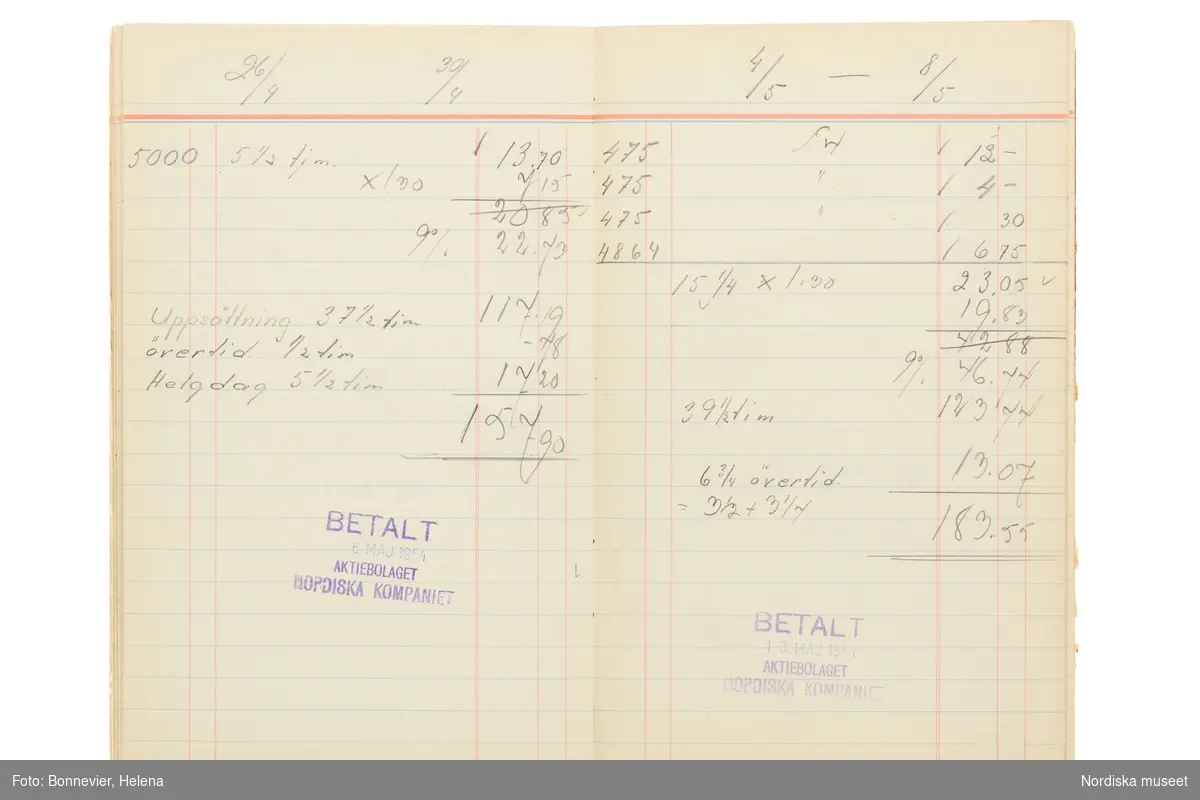 26/4 30/4
5000 5 1/2 tim. 1 13.70
X 1.30 7 15
20 85
9% 22.73
Uppsättning 37 1/2 tim 117.19
övertid. 1/2 tim -78
Helgdag 5 1/2 tim 17 20
157 90
BETALT
6 MAJ 1954
AKTIEBOLAGET
NORDISKA KOMPANIET
4/5 — 8/5
475 1 12-
475 " 1 4-
475 " 1 30
4864 1 6 75
15 1/4 X 1.30 23.05
19.83
42 88
9% 46.74
39 1/2 tim 123 74
6 3/4 övertid. 13.07
= 3 1/2 + 3 1/4
183.55
BETALT
1 3. MAJ 1954
AKTIEBOLAGET
NORDISKA KOMPANIET
Foto: Bonnevier, Helena
Nordiska museet